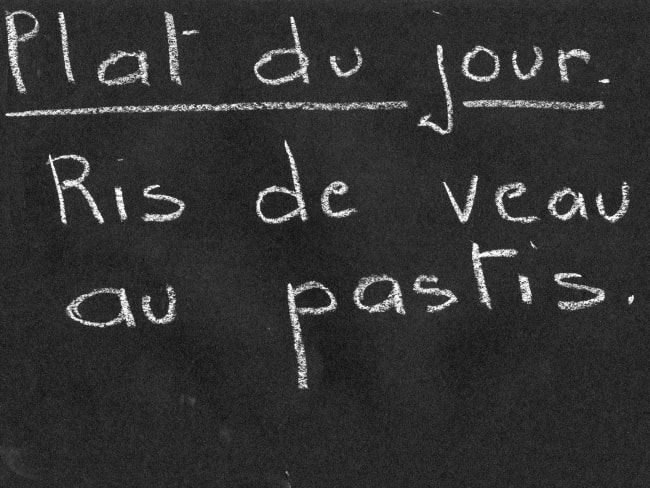 Plat du jour.
Ris de veau
au pastis.